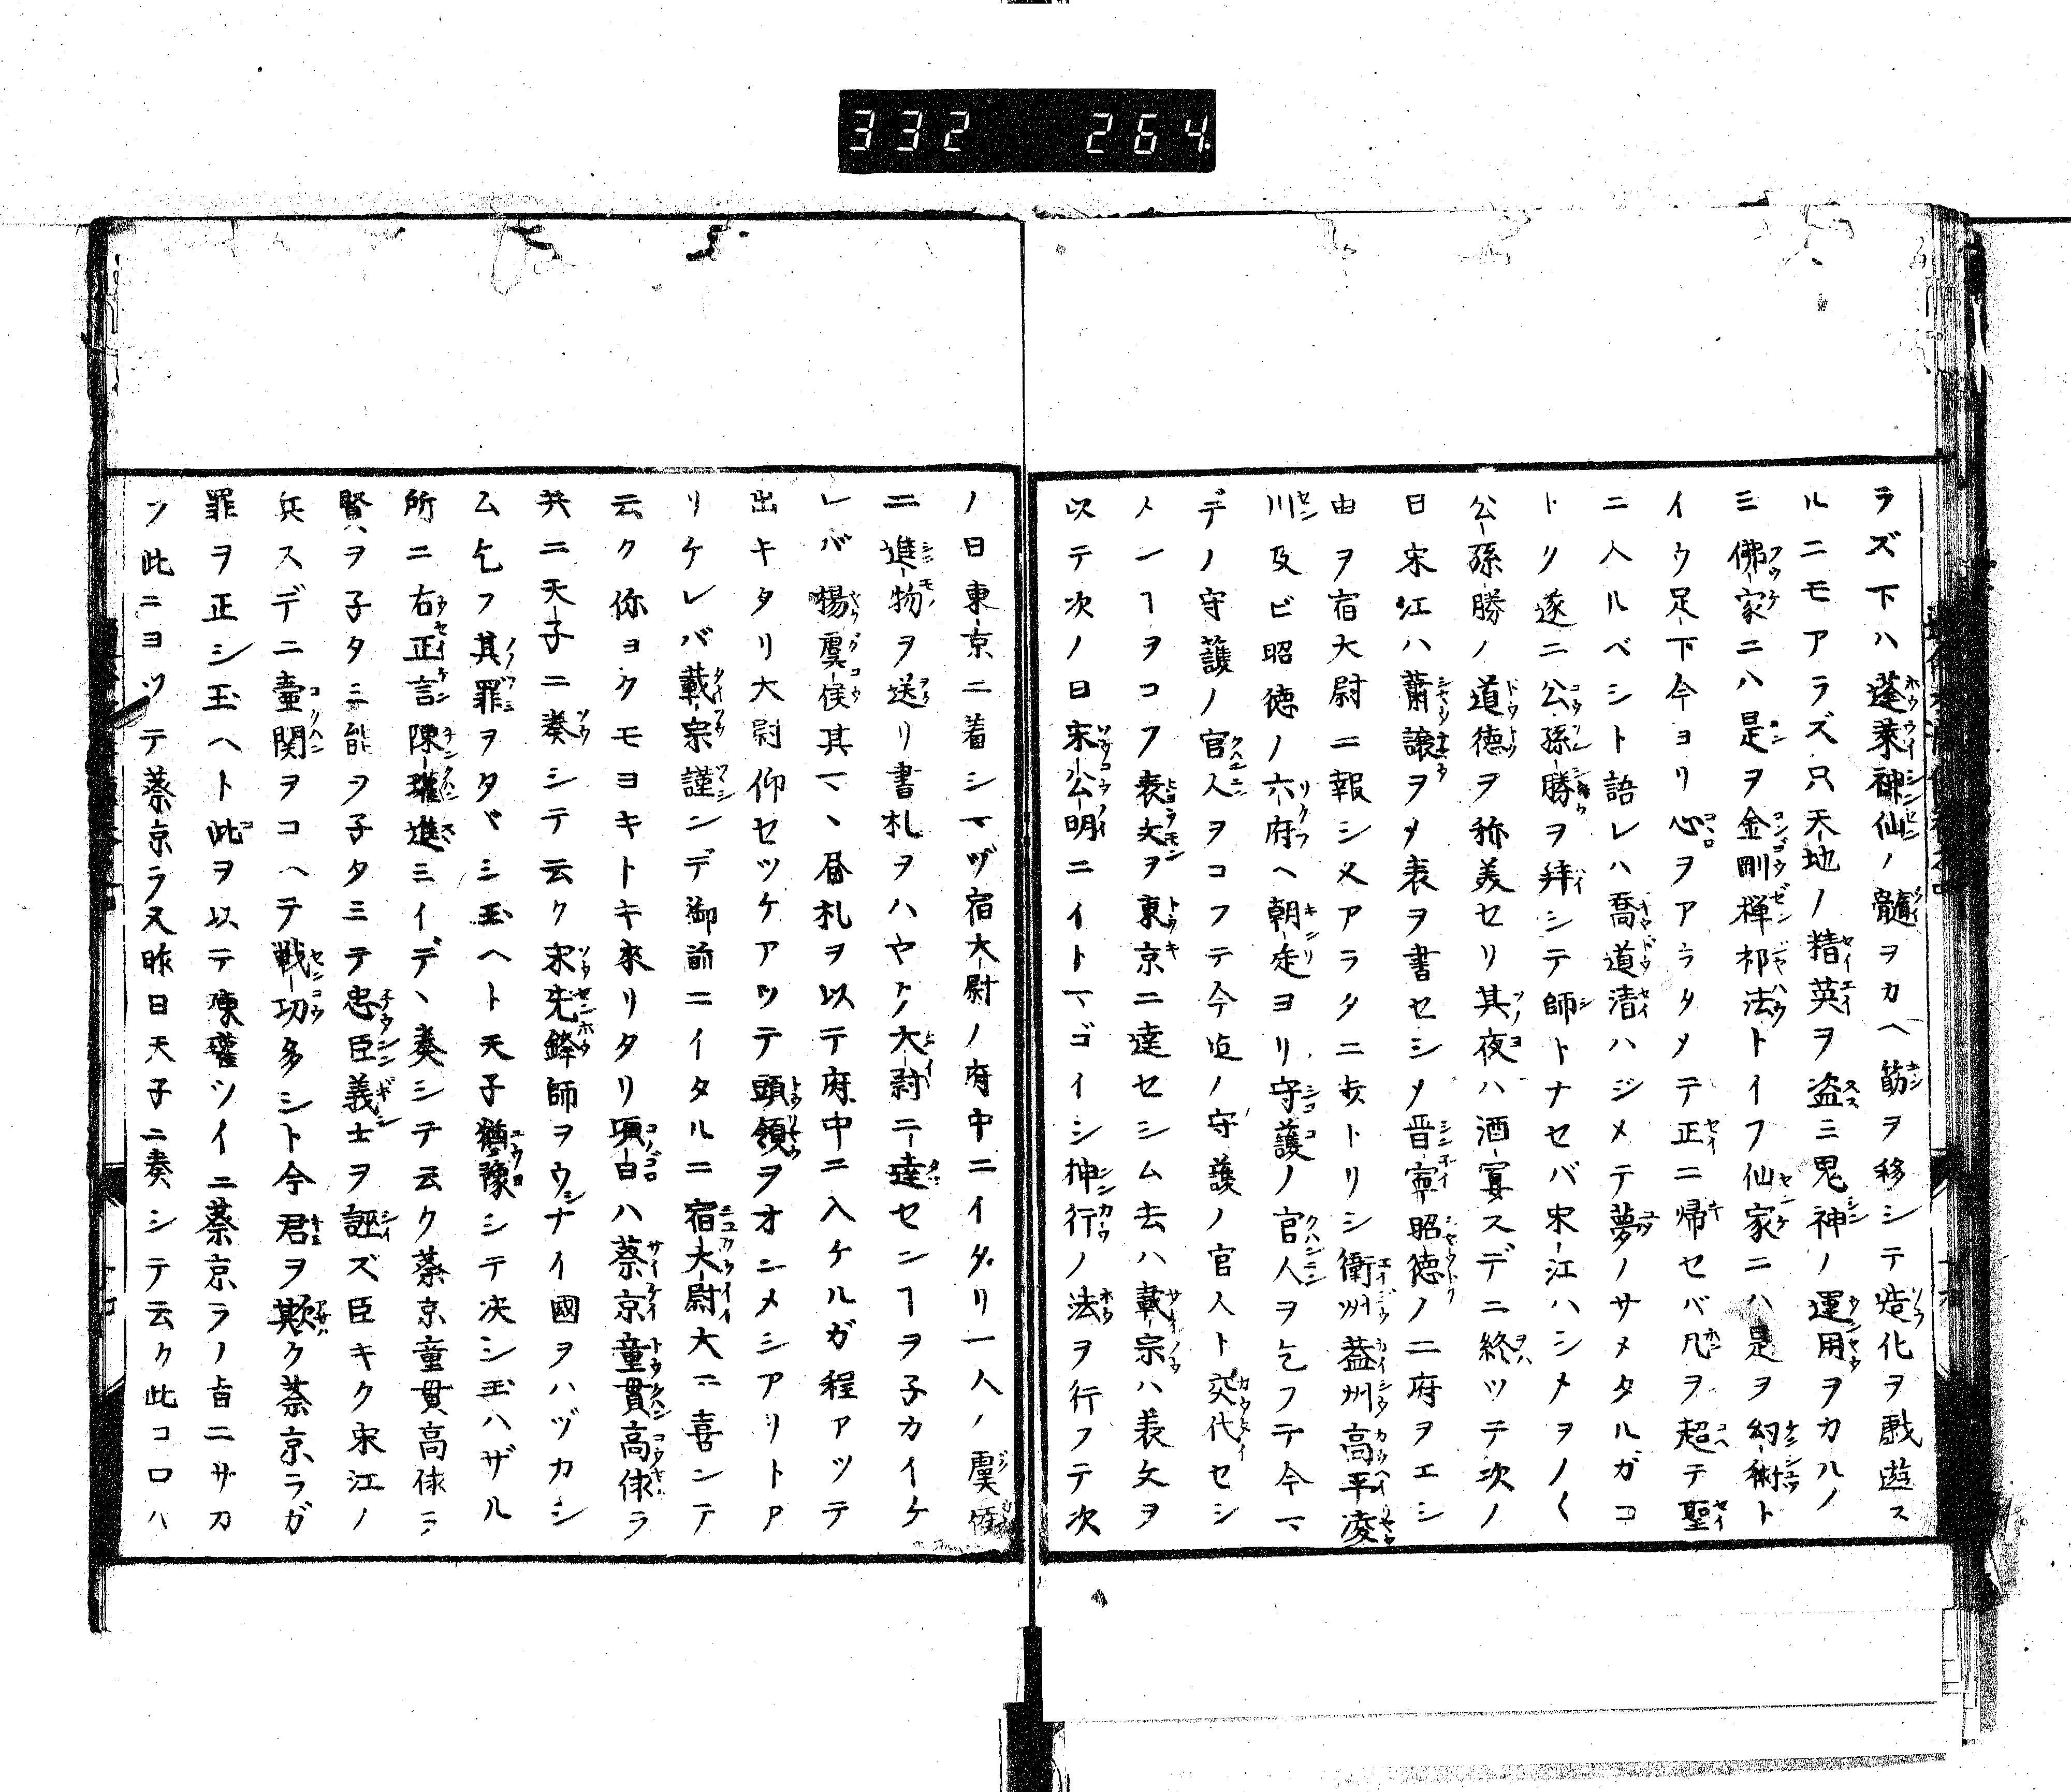 332 264
ラズ下ハ蓬莱神仙ノ髄ヲカヘ筋ヲ移シテ造化ヲ戯遊ス
ルニモアラズ只天地ノ精英ヲ盗ミ鬼神ノ運用ヲカルノ
ミ佛家ニハ是ヲ金剛禅邪法トイフ仙家ニハ是ヲ幻術ト
イウ足下今ヨリ心ヲアラタメテ正ニ帰セバ凡ヲ超テ聖
ニ入ルベシト語レハ喬道清ハジメテ夢ノサメタルガコ
トク遂ニ公孫勝ヲ拝シテ師トナセバ宋江ハシメヲノ〱
公孫勝ノ道徳ヲ称美セリ其夜ハ酒宴スデニ終ツテ次ノ
日宋江ハ蕭譲ヲメ表ヲ書セシメ晋寧昭徳ノ二府ヲエシ
由ヲ宿大尉ニ報シ又アラタニ攻トリシ衛州蓋州高平凌
川及ビ昭徳ノ六府ヘ朝走ヨリ守護ノ官人ヲ乞フテ今マ
デノ守護ノ官人ヲコフテ今迠ノ守護ノ官人ト交代セシ
メンヿヲコフ表文ヲ東京ニ達セシム去ハ戴宗ハ表文ヲ
以テ次ノ日宋公明ニイトマゴイシ神行ノ法ヲ行フテ次
ノ日東京ニ着シマヅ宿大尉ノ府中ニイタリ一人ノ虞候
ニ進物ヲ送リ書札ヲハヤク大尉ニ達センヿヲ子カイケ
レバ楊虞候其マヽ昏札ヲ以テ府中ニ入ケルガ程アツテ
出キタリ大尉仰セツケアツテ頭領ヲオンメシアリトア
リケレバ戴宗謹ンデ御前ニイタルニ宿大尉大ニ喜ンテ
云ク你ヨクモヨキトキ來リタリ項日ハ蔡京童貫高俅ラ
共ニ天子ニ奏シテ云ク宋先鋒師ヲウシナイ國ヲハヅカシ
ム乞フ其罪ヲタバシ玉ヘト天子猶豫シテ决シ玉ハザル
所ニ右正言陳瓘進ミイデヽ奏シテ云ク蔡京童貫高俅ラ
賢ヲ子タミ能ヲ子タミテ忠臣義士ヲ誣ズ臣キク宋江ノ
兵スデニ壷関ヲコヘテ戦功多シト今君ヲ欺ク蔡京ラガ
罪ヲ正シ玉ヘト此ヲ以テ陳瓘ツイニ蔡京ラノ旨ニサカ
フ此ニヨツテ蔡京ラ又昨日天子ニ奏シテ云ク此コロハ